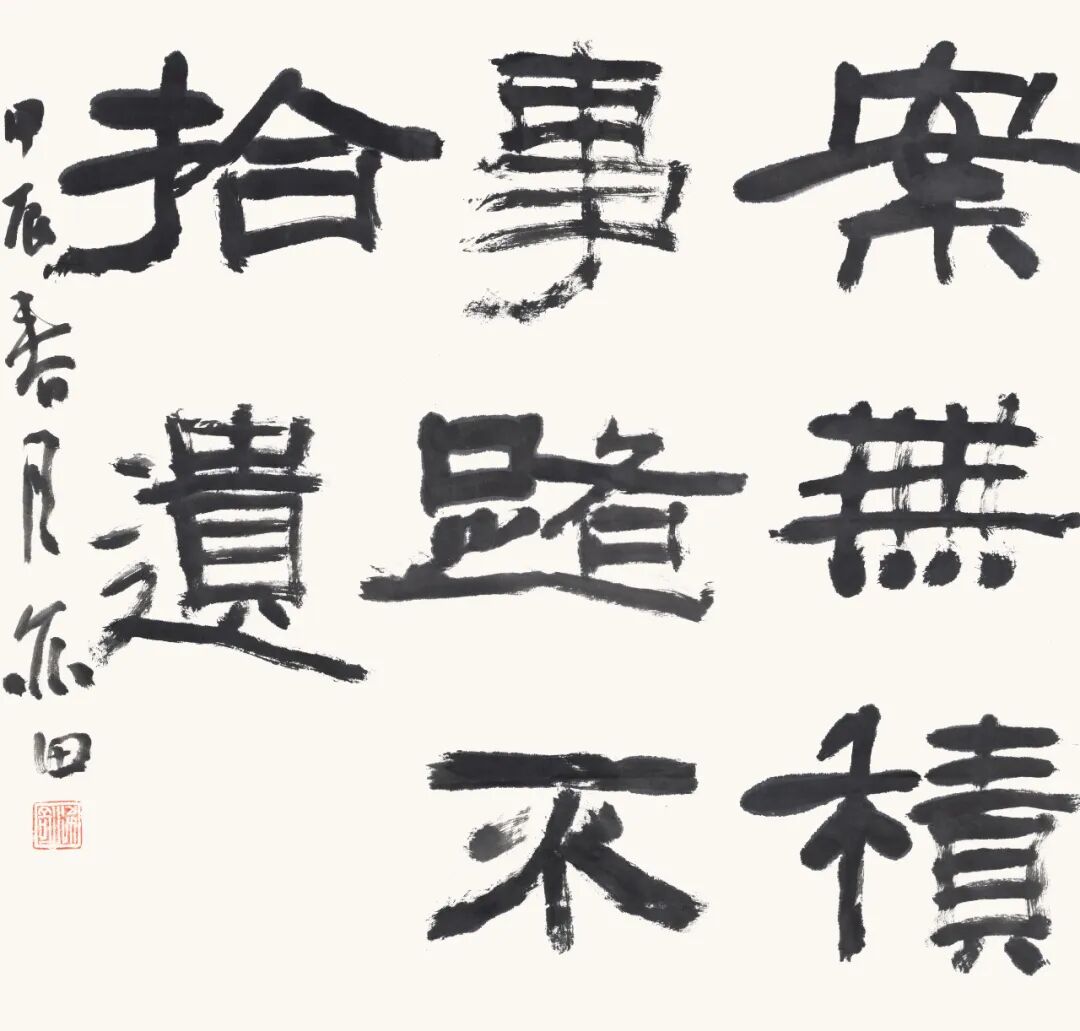 案無積
事路不
拾遺
甲辰春月亦田